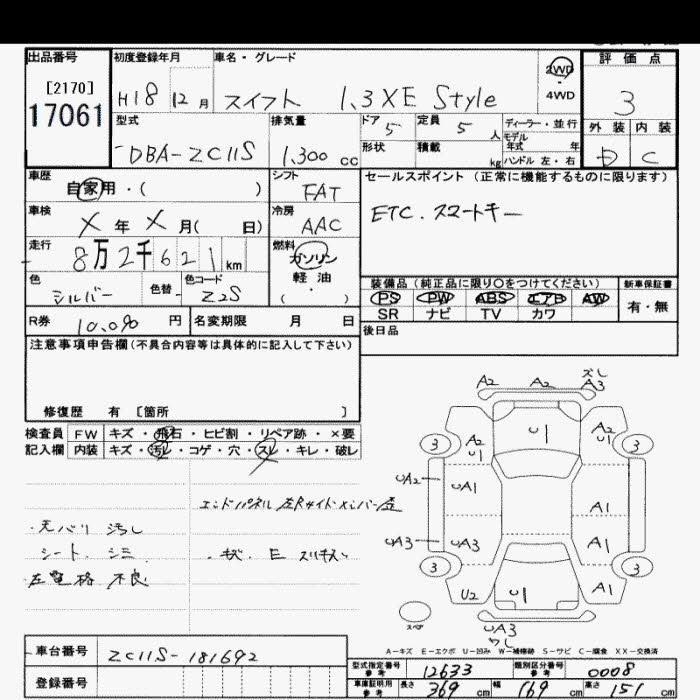 出品番号
[2170]
17061
初度登録年月
H18 12月
車名・グレード
スイフト 1.3XE Style
2WD
・
4WD
評価点
3
外装 内装
D C
型式
DBA-ZC11S
排気量
1,300 cc
ドア 5
定員 5 人
形状
積載 kg
ディーラー・並行
モデル
年式 年
ハンドル 左・右
車歴
自家用・( )
シフト
FAT
車検
X年X月( 日)
冷房
AAC
走行
8万2千621km
燃料
ガソリン
軽油
( ・ )
色
シルバー
色替
色コード
Z2S
R券 10,090 円
名変期限 月 日
セールスポイント(正常に機能するものに限ります)
ETC.スマートキー
装備品(純正品に限り○をつけてください)
新車保証書
PS PW ABS エアB AW
SR ナビ TV カワ
有・無
後日品
注意事項申告欄(不具合内容等は具体的に記入して下さい)
修復歴 有 [箇所 ]
検査員 FW キズ・飛石・ヒビ割・リペア跡・×要
記入欄 内装 キズ・汚レ・コゲ・穴・スレ・キレ・破レ
エンドパネル 左Rサイドメンバー歪
・天バリ 汚し
シート、シミ
・キズ、E スリキズ
左電格 不良
A2 A2 A3
3 A2 U1 U1 A2 U1 3
UA2 UA1 A1
UA3 UA3 A1
3 U2 U1 A1 3
スペア
UA3
ワレ
A-キズ E-エクボ U-凹み W-補修跡 S-サビ C-腐食 XX-交換済
車台番号 ZC11S-181692
登録番号
型式指定番号
参考
12633
類別区分番号
参考
0008
車庫証明用
参考
長さ 369 cm 幅 169 cm 高さ 151 cm